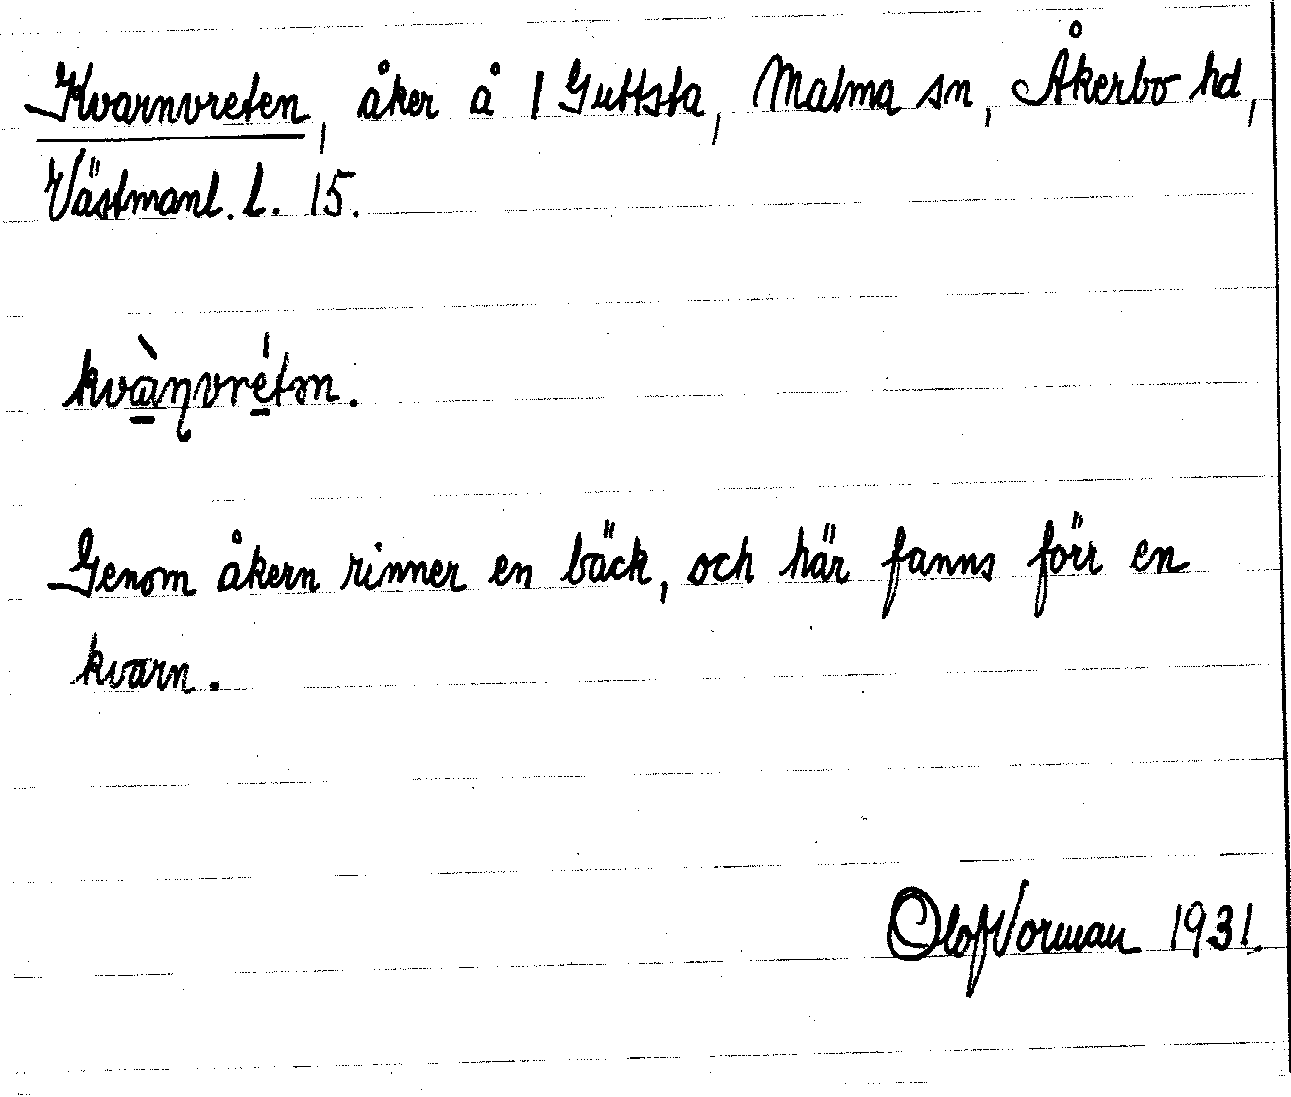 Kvarnvreten, åker å 1 Guttsta, Malma sn, Åkerbo hd,
Västmanl. l. 15.
kvàɳvrétən.
Genom åkern rinner en bäck, och här fanns förr en
kvarn.
Olof Norman 1931.